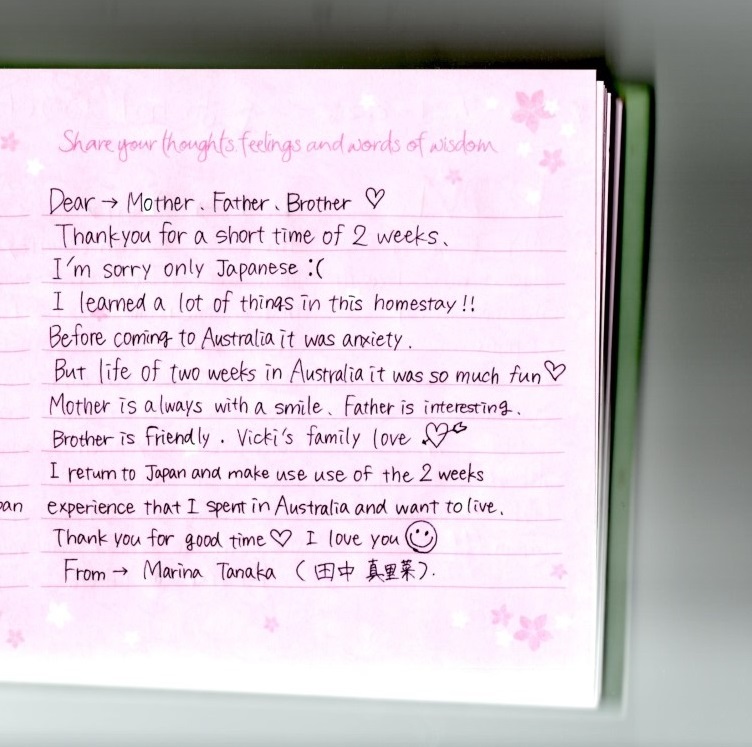 Share your thoughts, feelings and words of wisdom
Dear → Mother、Father、Brother ♡
Thankyou for a short time of 2 weeks、
I'm sorry only Japanese :(
I learned a lot of things in this homestay!!
Before coming to Australia it was anxiety.
But life of two weeks in Australia it was so much fun♡
Mother is always with a smile、Father is interesting、
Brother is friendly. Vicki's family love ♡
I return to Japan and make use use of the 2 weeks
pan experience that I spent in Australia and want to live、
Thank you for good time♡ I love you ☺
From → Marina Tanaka (田中 真里菜).